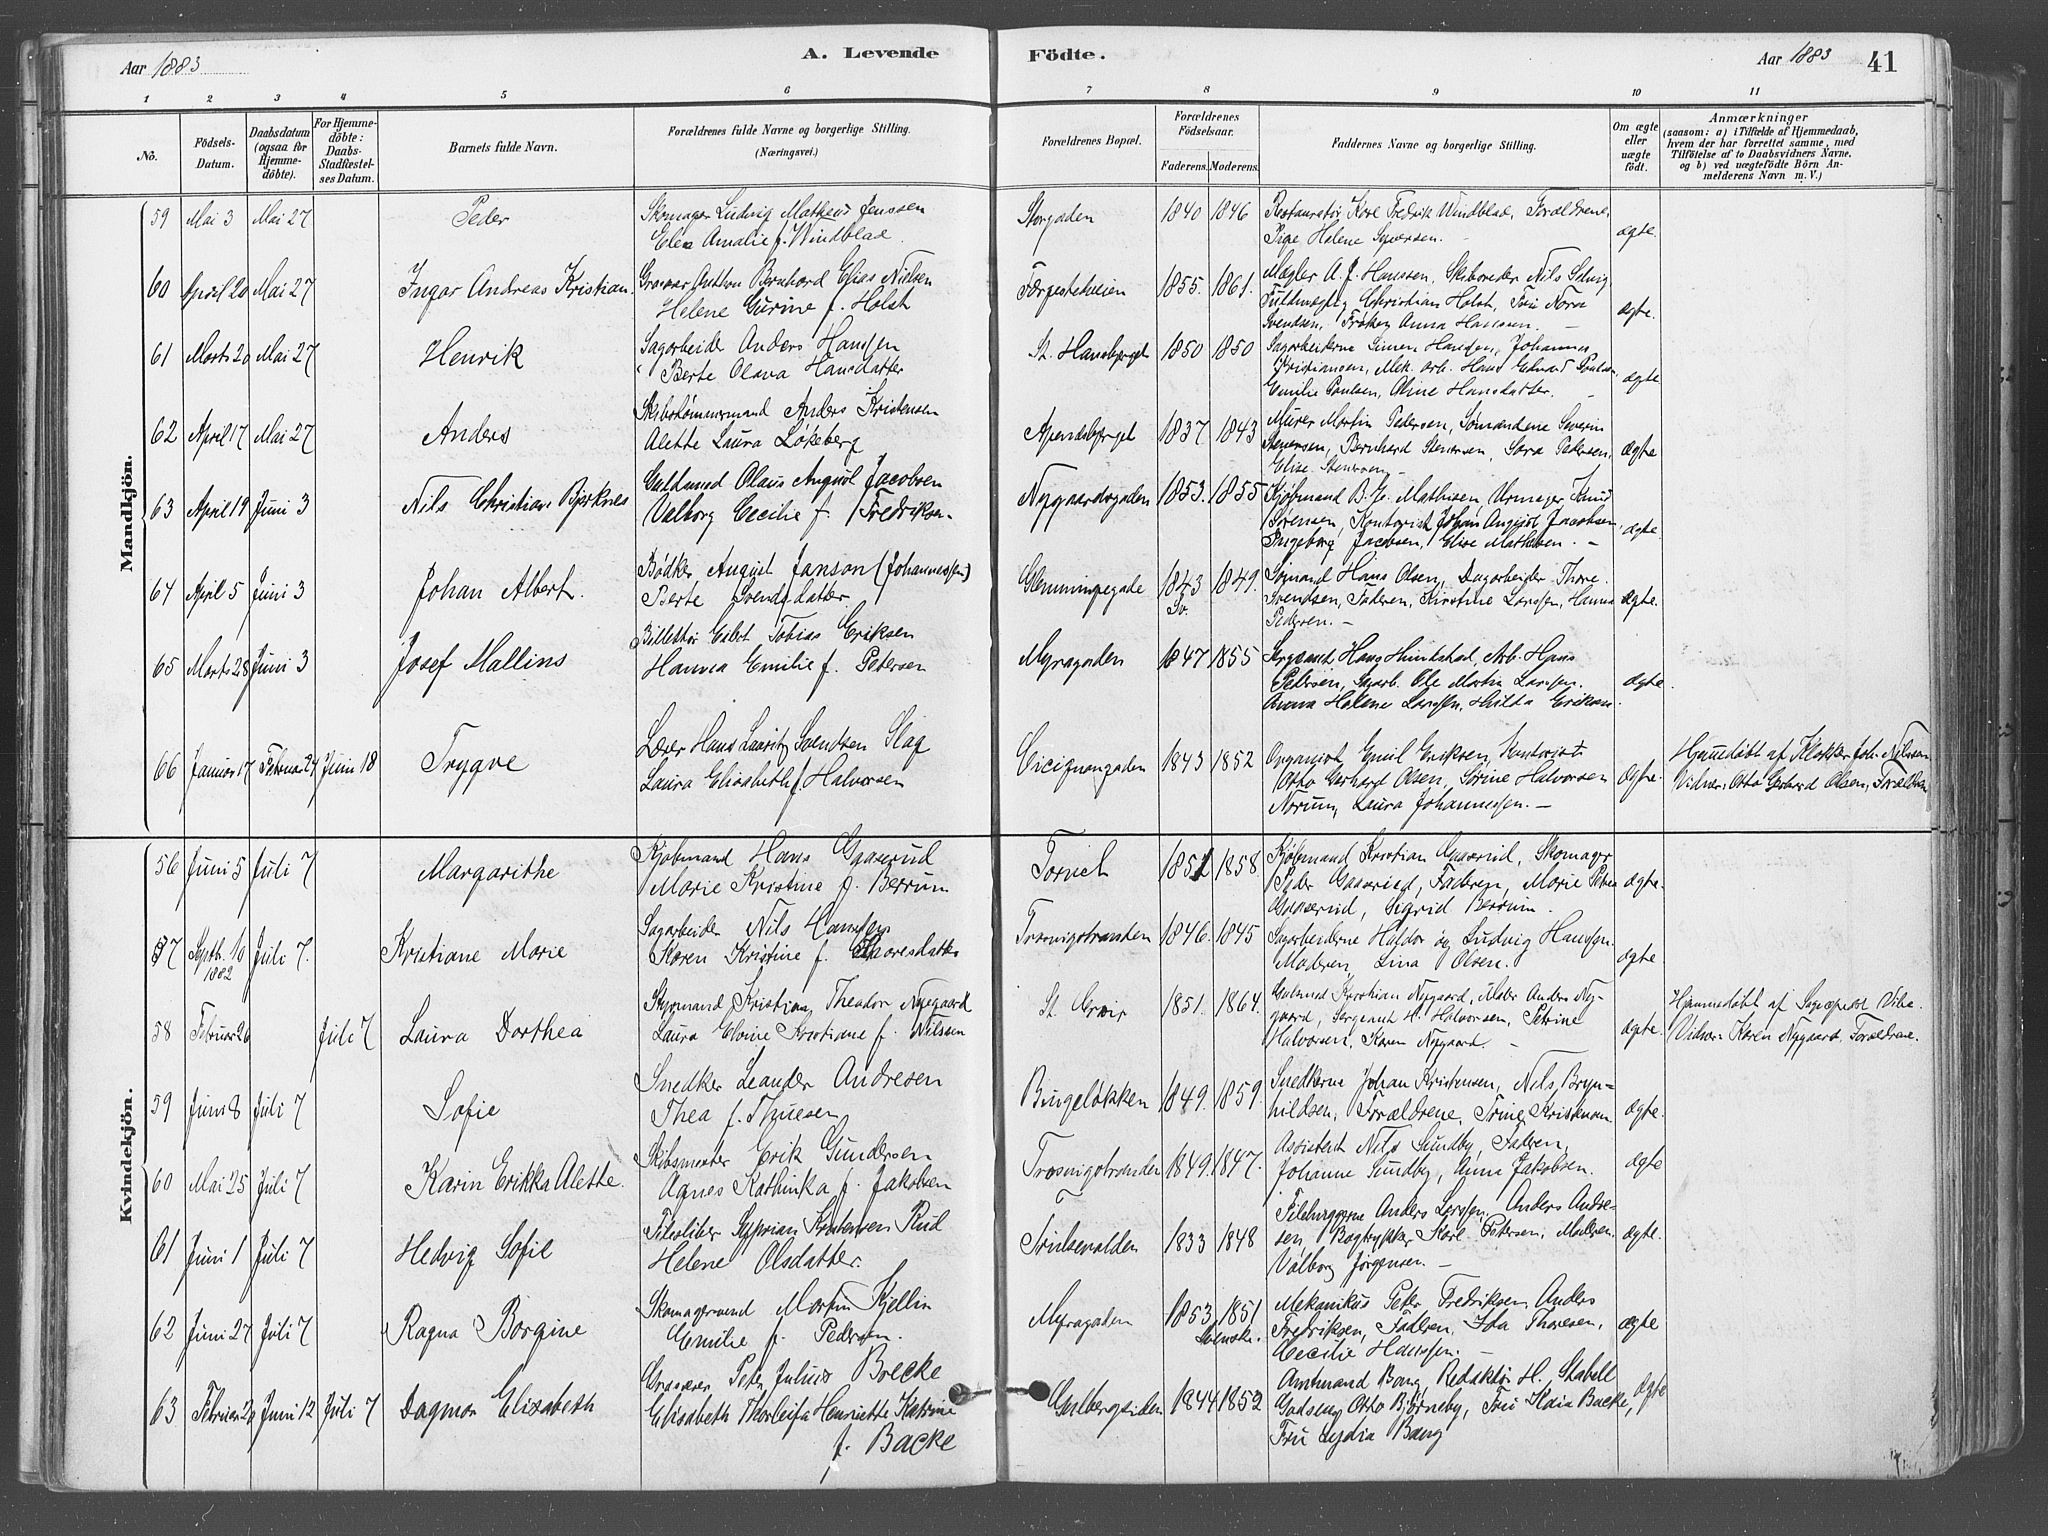 Aar 1883
A. Levende
Födte.
Aar 1883
41
1 2 3 4 5 6 7 8 9 10 11
No.
Födsels-Datum.
Daabsdatum (ogsaa for Hjemme-döbte).
For Hjemme-döbte: Daabs-Stadfæstel-ses Datum.
Barnets fulde Navn.
Forældrenes fulde Navne og borgerlige Stilling. (Næringsvei.)
Forældrenes Bopæl.
Forældrenes Födselsaar.
Faderens. Moderens.
Faddernes Navne og borgerlige Stilling.
Om ægte eller uægte födt.
Anmærkninger
(saasom: a) i Tilfælde af Hjemmedaab, hvem der har forrettet samme, med Tilföielse af to Daabsvidners Navne, og b) ved uægtefödte Börn An-melderens Navn m. V.)
Mandkjön.
59 Mai 3 Mai 27 Peder Skomager Ludvig Matheus Jenssen Storgaden 1840 1846 Restauratör Karl Fredrik Windblad, Forældrene,
Elen Amalie f. Windblad. Pige Helene Syversen. ægte.
60 April 20 Mai 27 Ingar Andreas Kristian Anthon Bernhard Elias Nielsen 1855. 1861. Mægler A. J. Hanssen, Skibsreder Nils
Helene Gurine f. Holst Christian Holst, Fru Nora ægte.
Svendsen, Frøken Anna Hanssen.
61 Marts 20 Mai 27 Henrik Sagarbeider Anders Hanssen St. Hansberget 1850 1850 Sagarbeiderne Simen Hanssen, Johannes
Berte Olava Hansdatter Kristiansen, Mek. arb. Hans Edvard Paulsen, ægte
Emilie Paulsen, Oline Hansdatter.
62 April 17 Mai 27 Anders Skibstömmermand Anders Kristensen Apenesberget 1837 1843 Murer Martin Pedersen, Sømændene Severin
Alette Laura Løkeberg Stenersen, Bernhard Stenersen, Sara Pedersen, ægte
Elise Stenersen
63 April 19 Juni 3 Nils Christian Bjerknes Guldsmed Olaus August Jacobsen Nygaardsgaden 1853. 1855 Kjøbmand B. H. Mathisen, Urmager Knud
Valborg Cecilie f. Fredriksen Sørensen, Kontorist Johan August Jacobsen, ægte.
Ingeborg Jacobsen, Elise Mathisen.
64 April 5 Juni 3 Johan Albert. Bødker August Janson (Johannessen) Glemmingegade 1843 1849. Sømand Hans Olsen, Dagarbeider Thore
Berte Svendsdatter. Sv. Svendsen, Faderen, Kirstine Larssen, Hanna ægte.
Pedersen.
65 Marts 28 Juni 3 Josef Mallins Tobias Eriksen Myragaden 1847 1855 Sergeant Hans Arb. Hans
Hanna Emilie f. Petersen Pedersen, Sagarb. Ole Martin Larssen. ægte.
Anna Helene Larssen, Hilda Eriksen.
66 Januar 17 Februar 24 Juni 18 Trygve Lærer Hans Lauritz Svendsen Slag Cicignongaden 1843 1852 Organist Emil Eriksen, Kontorist Hjemmedøbt af Klokker Joh. Nilssen
Laura Elisabeth f. Halvorsen Otto Gerhard Olsen, Sørine Halvorsen ægte. Vidner: Otto Gerhard Olsen, Forældrene
Norum, Laura Johannessen.
Kvindekjön.
56 Juni 5 Juli 7 Margarithe Kjøbmand Hans Gaaserud Torvet 1851 1858. Kjøbmand Kristian Gaaserud, Skomager
Marie Kristine f. Berrum Peder Gaaserud, Faderen, Marie Petra ægte.
Gaaserud, Sigrid Berrum.
57 Septb. 10 Juli 7. Kristiane Marie Sagarbeider Nils Hanssen Trosvigstranden 1846. 1845 Sagarbeiderne Haldor og Ludvig Hanssen.
1882 Karen Kristine f. Moderen, Lina Olsen. ægte.
58 Februar 26 Juli 7 Laura Dorthea Styrmand Kristian Theodor Nygaard St. Croix 1851. 1864. Gulsmed Kristian Nygaard, Maler Anders Ny- Hjemmedøbt af
Laura Elvine Kristiane f. Nilssen gaard, Sergeant H. Halvorsen, Petrine ægte. Vidner: Karen Nygaard, Forældrene.
Halvorsen, Karen Nygaard.
59 Juni 8 Juli 7 Sofie Snedker Leander Andresen Bingeløkken 1849. 1859. Snedkerne Johan Kristensen, Nils Bryn-
Thea f. Thuesen hildsen, Forældrene, Trine Kristensen ægte.
60 Mai 25 Juli 7 Karin Erikka Alette. Skibsmester Erik Gundersen Trosvigstranden 1849. 1847. Assistent Nils Sundby, Faderen,
Agnes Kathinka f. Jakobsen Johanne Sundby, Anna Jakobsen. ægte
61 Juni 1 Juli 7 Hedvig Sofie Syprian Kristensen Rud 1833 1848 Filehuggerne Anders Larssen, Anders Andre-
Helene Olsdatter. sen, Bogtrykker Karl Petersen, Moderen, ægte.
Valborg Jørgensen.
62 Juni 27 Juli 7 Ragna Borgine Skomagersvend Martin Kjellin Myragaden 1853 1851 Mekanikus Peter Fredriksen, Anders
Emilie f. Pedersen. Svenske. Fredriksen, Faderen, Ida Thoresen, ægte
Cecilie Hanssen.
63 Februar Juni 12 Juli 7 Dagmar Elisabeth Peter Julius Boecke Gulbergsiden 1844 1852 Amtmand Bang, Redaktør H. Stabell
Elisabeth Thorleifa Henriette Katrine Otto Bjørneby, Fru Kaia Backe, ægte
f. Backe Fru Lydia Bang